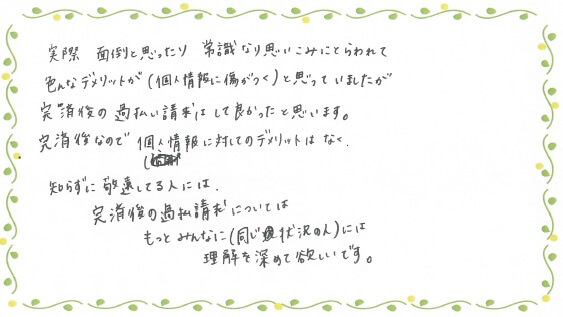 実際 面倒と思ったり 常識なり思いこみにとらわれて
色んなデメリットが(個人情報に傷がつく)と思っていましたが
完済後の過払い請求はして良かったと思います。
完済後なので 個人情報に対してのデメリットはなく、
知らずに敬遠してる人には、
完済後の過払請求については
もっとみんなに(同じ状況の人)には
理解を深めて欲しいです。